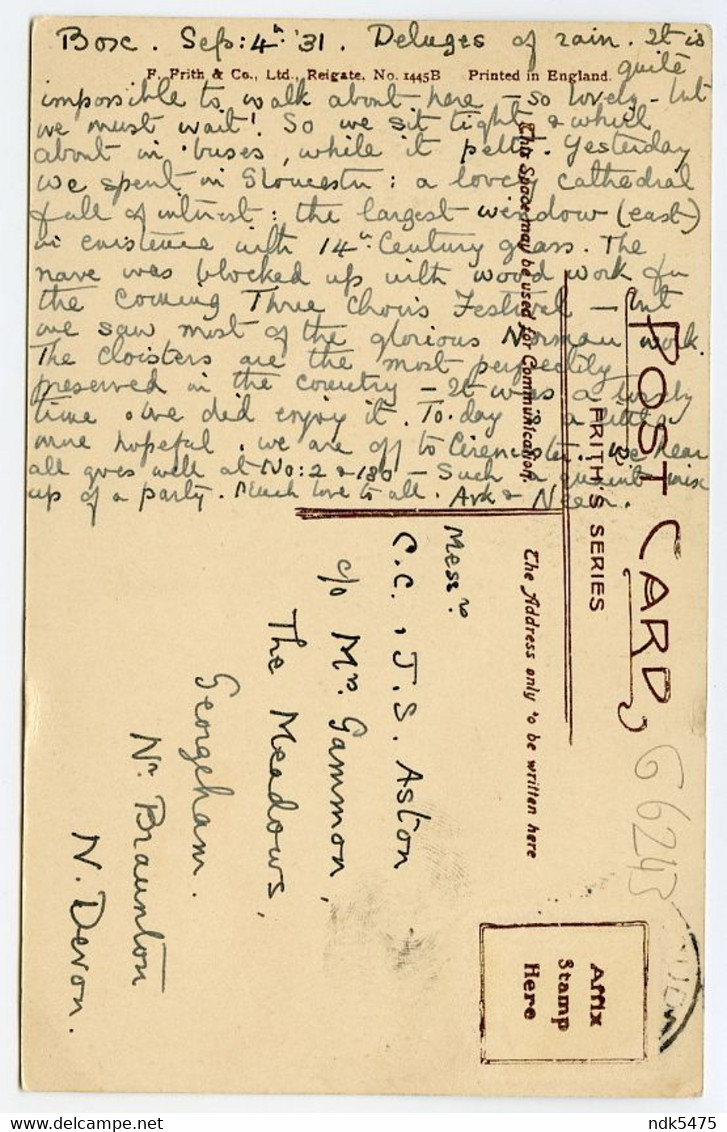 Sep: 4th '31. Deluges of rain. It is
F. Frith & Co., Ltd., Reigate. No. 1445B Printed in England.
quite
impossible to walk about here - so lovely - but
we must wait! So we sit tight & whirl
about in 'buses, while it pelts. Yesterday
we spent in Gloucester: a lovely cathedral
full of interest: the largest window (east)
in existence with 14th Century glass. The
nave was blocked up with wood work for
the coming Three Choirs Festival - but
we saw most of the glorious Norman work.
The cloisters are the most perfectly
preserved in the country - It was a lovely
time & we did enjoy it. To-day is a little
more hopeful. we are off to Cirencester. We hear
all goes well at No: 2 & 180 - Such a mix
up of a party. Much love to all.
This Space may be used for Communication.
POST CARD
FRITH'S SERIES
The Address only to be written here
Messrs.
C.C., J.S. Aston
c/o Mrs. Gammon,
The Meadows,
Georgeham.
Nr. Braunton
N. Devon.
G6243
Affix
Stamp
Here
ndk5475